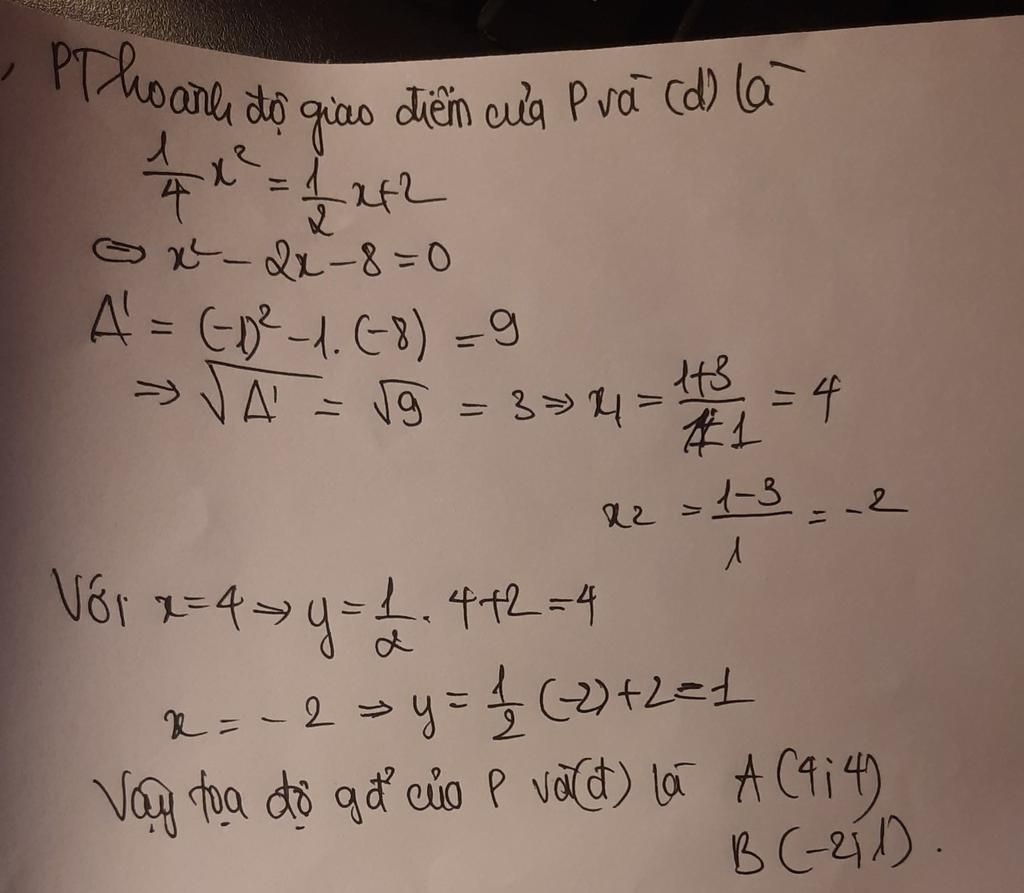 , PT hoành độ giao điểm của P và (d) là
1/4 x² = 1/2 x+2
⇔ x² - 2x - 8 = 0
Δ' = (-1)² - 1. (-8) = 9
⇒ √Δ' = √9 = 3 ⇒ x1 = (1+3)/1 = 4
x2 = (1-3)/1 = -2
Với x=4 ⇒ y = 1/2 . 4+2 = 4
x = -2 ⇒ y = 1/2 (-2)+2 = 1
Vậy tọa độ gđ của P và (d) là A (4;4)
B (-2;1).